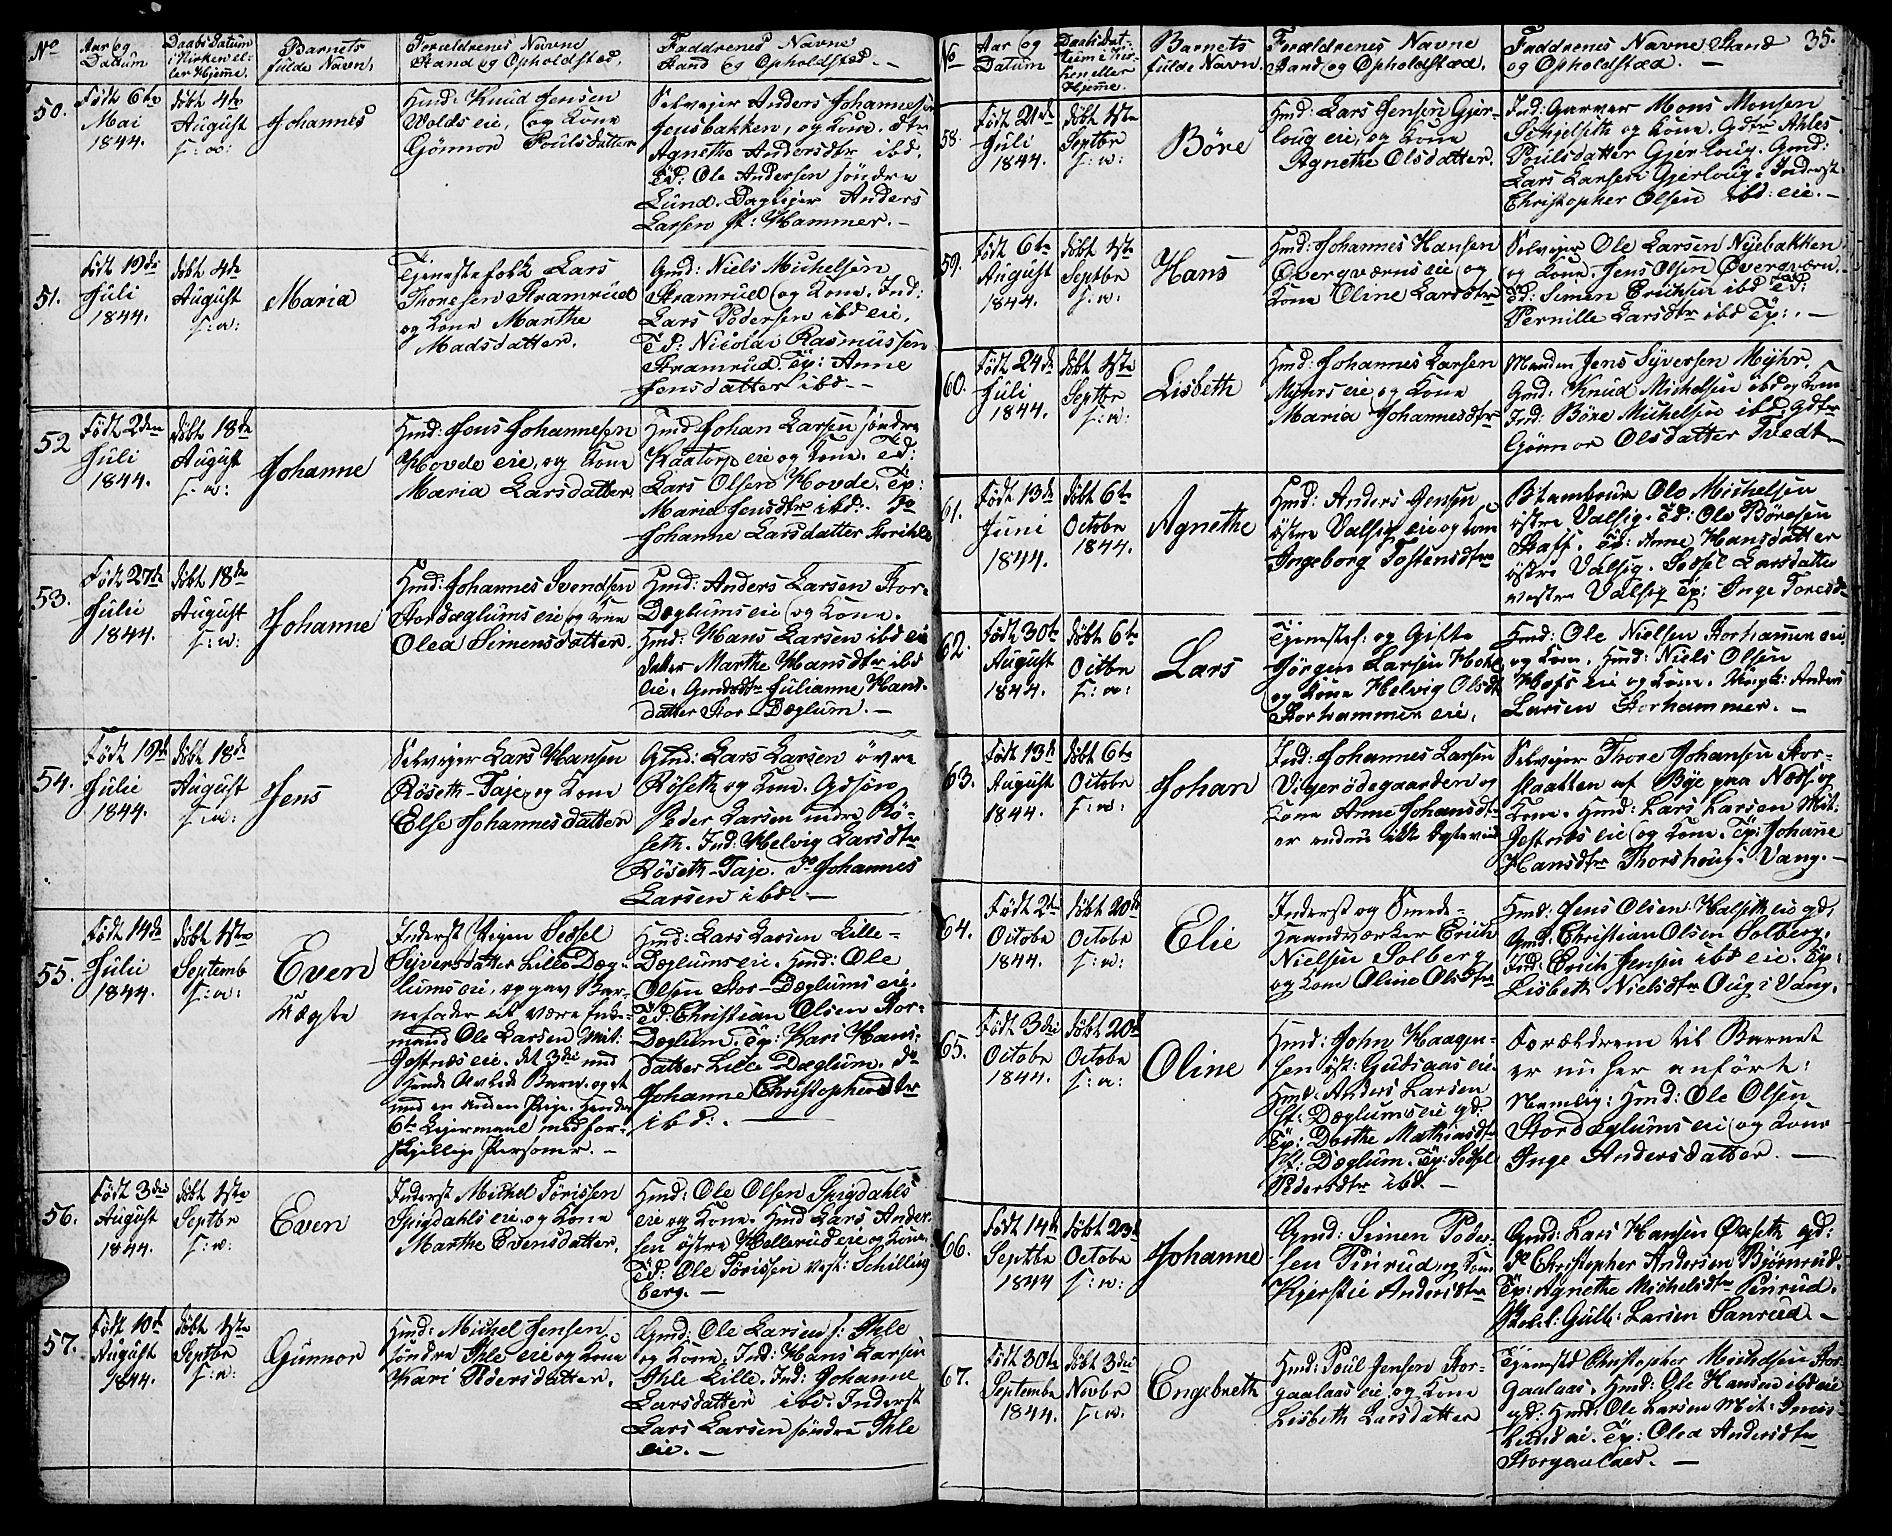 No
Aar og
Datum
Daabs Datum
i Kirken el-
ler Hjeme.
Barnets
fulde Navn.
Forældrenes Navne
Stand og Opholdsted.
Faddrenes Navne
Stand og Opholdsted. -
50.
Født 6te
Mai
1844.
döbt 4de
August
Johannes
Hmd: Knud Jensen
Volds eie, og Kone
Gönnor Poulsdatter
Selveier Anders Johannesen
Jensbakken, og Kone.
Agnethe Andersdtr ibd.
Ed: Ole Andersen söndre
Lund. Daglejer Anders
Larsen St: Hammer. -
51.
Født 19de
Juli
1844.
döbt 4de
August
Maria
Tjenestefolk Lars
Thoresen Stramrud
og Kone Marthe
Madsdatter.
Gmd: Niels Michelsen
Stramrud og Kone. Ind:
Lars Pedersen ibd eie.
Ed: Nicolai Rasmussen
Stramrud. Tp: Anne
Jensdatter ibd. -
52
Født 2den
Juli
1844.
döbt 18de
August
Johanne
Hmd: Jens Johannesen
Hovde eie, og Kone
Maria Larsdatter
Hmd Johan Larsen söndre
Kaatorp eie og Kone. Ed:
Lars Olsen Hovde. Tp:
Maria Jensdtr ibd. Do
Johanne Larsdatter
53.
Født 27de
Julie
1844.
döbt 18de
August
Johanne
Hmd: Johannes Svendsen
Stordæglums eie og Kone
Olea Simensdatter.
Hmd: Anders Larsen Stor-
Dæglums eie og Kone.
Hmd: Hans Larsen ibd eie
Marthe Hansdtr ibd
eie. Julianne Hans-
datter Stor-Dæglum. -
54.
Født 19de
Julie
1844.
döbt 18de
August
Jens
Selveier Lars Hansen
Röseth-Taje, og Kone
Else Johannesdatter
Gmd: Lars Larsen övre
Röseth og Kone. Gdsön
Peder Larsen nedre Rö-
seth. Ind: Helvig Larsdtr
Röseth-Taje. Do Johannes
Larsen ibd. -
55.
Født 14de
Julii
1844.
döbt 1ste
Septemb
Even
Uægte
Inderst Pigen Sidsel
Siversdatter Lille Dæg-
lums eie, opgav Bar-
nefader at være Inde-
Ole Larsen Mit:
Gestnæs eie. det 3die med
Avlede Barn, og et
med en anden Pige. Hendes
6te Leiermaal med for-
skjellige Personer. -
Hmd: Lars Larsen Lille-
Dæglums eie. Hmd: Ole
Olsen Stor-Dæglums eie.
Ed: Christian Olsen Stor-
Dæglum. Tp: Kari Hans-
datter Lille Dæglum. do
Johanne Christophersdtr
ibd: -
56.
Født 3die
August
1844.
döbt 1ste
Septbr
Even
Inderst Michel Törissen
Spigdahls eie og Kone
Marthe Evensdatter.
Hmd: Ole Olsen Spigdahls
eie og Kone. Hmd Lars Ander-
sen östre Hellerud eie og Kone.
Ed: Ole Törissen vest: Schilling-
berg. -
57.
Født 10de
August
1844.
döbt 1ste
Septbr
Gunnor
Hmd: Michel Jensen
söndre Ihle eie og Kone
Kari Pedersdatter.
Gmd: Ole Larsen s: Ihle
og Kone. Ind: Hans Larsen
Ihle Lille. Ind: Johanne
Larsdatter ibd. Inderst
Lars Larsen söndre Ihle
eie. -
No
Aar og
Datum
Barnets
fulde Navn.
Forældrenes Navne
Stand og Opholdsted.
Faddrenes Navne Stand
og Opholdsted. -
35.
58.
Født 21de
Juli
1844.
döbt 1ste
Septbr
Böre
Hmd: Lars Jensen Gjer-
loug eie, og Kone
Agnethe Olsdatter.
Ind: Garver Mons Monsen
Schjelseth og Kone. Gdtr Ahles
Poulsdatter Gjerloug. Gmd:
Lars Larsen Gjerloug. Inderst
Christopher Olsen ibd: eie. -
59.
Født 6te
August
1844.
döbt 1ste
Septbr
Hans
Hmd: Johannes Hansen
Overqværns eie, og
Kone Oline Larsdtr
Selveier Ole Larsen Nyebakken
og Kone. Jens Olsen Overqværn.
Ed: Simen Erichsen ibd Ed:
Pernille Larsdtr ibd Tp:. -
60.
Født 24de
Juli
1844.
döbt 1ste
Septbr
Lisbeth
Hmd: Johannes Larsen
Myhrs eie og Kone
Maria Johannesdtr
Manden Jens Syversen Myhr.
Gmd: Knud Michelsen ibd og Kone
Ind: Böre Michelsen ibd. Gdtr
Gönnor Olsdatter Tvedt -
61.
Født 13de
Juni
1844.
döbt 6te
Octobr
1844.
Agnethe
Hmd: Anders Jensen
östre Valsig eie og Kone
Ingeborg Tostensdtr
Ole Michelsen
östre Valsig. Ed: Ole Böresen
Staff. Tp: Anne Hansdatter
östre Valsig. Sidsel Larsdatter
vestre Valsig Tp: Inge Toresd
62.
Født 30te
August
1844.
döbt 6te
Octbr
Lars
Tjenestef: og Gifte
Jörgen Larsen
og Kone Helvig Olsdt
Storhammer eie.
Hmd: Ole Nielsen Storhammer eie
og Kone. Hmd: Niels Olsen
Hofs eie og Kone. Anders
Larsen Storhammer. -
63.
Født 13de
August
1844.
döbt 6te
Octobr
Johan
Ind: Johannes Larsen
Vigerödegaarden og
Kone Anne Johansdt
Selveier Thore Johansen Stor-
slaatten af Bye paa Næss og
Kone. Hmd: Lars Larsen Mit.
Gestnæs eie og Kone. Tp: Johane
Hansdtr Thorshoug i Vang. -
64.
Født 2de
Octobr
1844.
döbt 20de
Octobr
Elie
Inderst og Smede-
Haandværker Erich
Nielsen Solberg
og Kone Oline Olsdtr
Hmd: Jens Olsen Halseth eie gd.
Gmd: Christian Olsen Solberg.
Ind: Erich Jensen ibd eie. Tp:
Lisbeth Nielsdtr Oug i Vang.
65.
Født 3die
Octobr
1844.
döbt 20de
Octobr
Oline
Hmd: John Haagen-
sen öst: Gudsaas eie
Hmd: Anders Larsen
St: Dæglums eie gd.
Tp: Dorthe Mathiasdtr
St: Dæglum. Tp: Sidsel
Pedersdtr ibd. -
Forældrene til Barnet
er nu her anförte:
Nemlig: Hmd: Ole Olsen
Stordæglums eie og Kone
Inge Andersdatter. -
66.
Født 14de
Septbr
1844
döbt 23de
Octobr
Johanne
Gmd: Simen Peder-
sen Pinrud og Kone
Kjerstie Andersdtr
Gmd: Lars Hansen Öxseth gd:
Do Christopher Andersen Björnrud.
Tp: Agnethe Michelsdtr Pinrud.
Gulb: Larsen Sanrud. -
67.
Født 30te
Septembr
1844.
döbt 3die
Novbr
Engebreth
Hmd: Poul Jensen Stor-
gaalaas eie, og Kone
Lisbeth Larsdatter
Tjenested Christopher Michelsen Stor-
gaalaas. Hmd: Ole Hansen ibd eie
gd: Hmd: Ole Larsen Mit:
eie. Tp: Olea Andersdtr
Storgaalaas. -